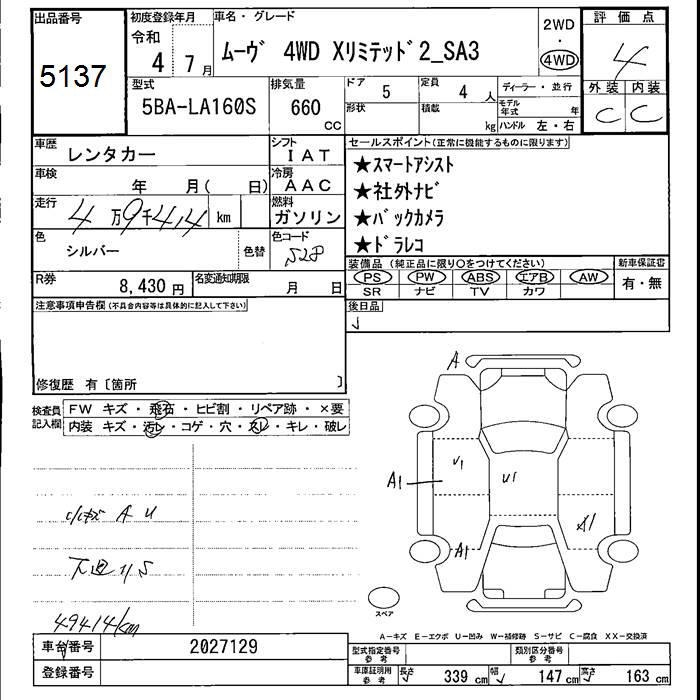 出品番号 初度登録年月 車名・グレード 2WD 評価点
令和
5137 4 7月 ムーヴ 4WD Xリミテッド2_SA3 ・ 4WD 4
型式 排気量 ドア 5 定員 4人 ディーラー・並行 外装 内装
5BA-LA160S 660 CC 形状 積載 kg モデル年式 年 C C
ハンドル 左・右
車歴 レンタカー シフト IAT セールスポイント(正常に機能するものに限ります)
車検 年 月( 日) 冷房 AAC ★スマートアシスト
走行 4万9千414 km 燃料 ガソリン ★社外ナビ
★バックカメラ
色 シルバー 色替 色コード S28 ★ドラレコ
装備品(純正品に限り○をつけてください) 新車保証書
R券 8,430円 名変通知期限 月 日 PS PW ABS エアB AW 有・無
SR ナビ TV カワ
注意事項申告欄(不具合内容等は具体的に記入して下さい) 後日品
修復歴 有〔箇所 〕
検査員記入欄 FW キズ・飛石・ヒビ割・リペア跡・×要
内装 キズ・汚レ・コゲ・穴・スレ・キレ・破レ
A
A1 U1 U1
A1 A1
小キズ A U
下廻りS
スペア
49414km
A-キズ E-エクボ U-凹み W-補修跡 S-サビ C-腐食 XX-交換済
車台番号 2027129 型式指定番号 参考 類別区分番号 参考
登録番号 車庫証明用 参考 長さ 339 cm 幅 147 cm 高さ 163 cm